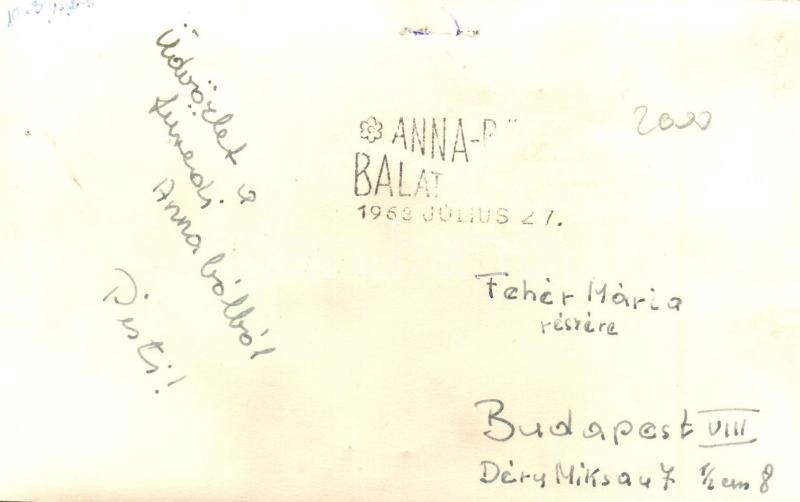 Üdvözlet a
füredi
Anna bálból
Pisti!
ANNA-B
BALAT
1963 JÚLIUS 27.
2000
Fehér Mária
részére
Budapest VIII
Déry Miksa u 7 1/2 em 8